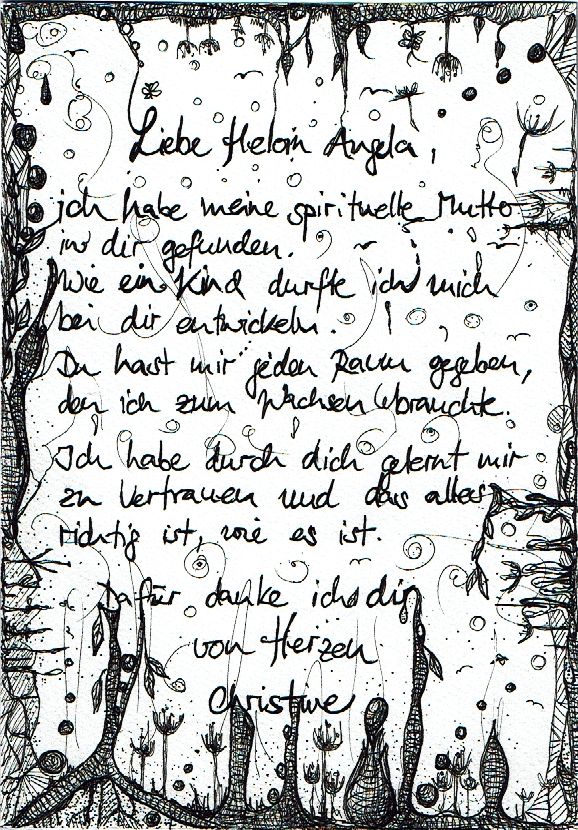 Liebe Heloin Angela,
ich habe meine spirituelle Mutter
in dir gefunden.
Wie ein Kind durfte ich mich
bei dir entwickeln.
Du hast mir jeden Raum gegeben,
den ich zum Wachsen brauchte.
Ich habe durch dich gelernt mir
zu Vertrauen und das alles
richtig ist, wie es ist.
Dafür danke ich dir
von Herzen
Christine